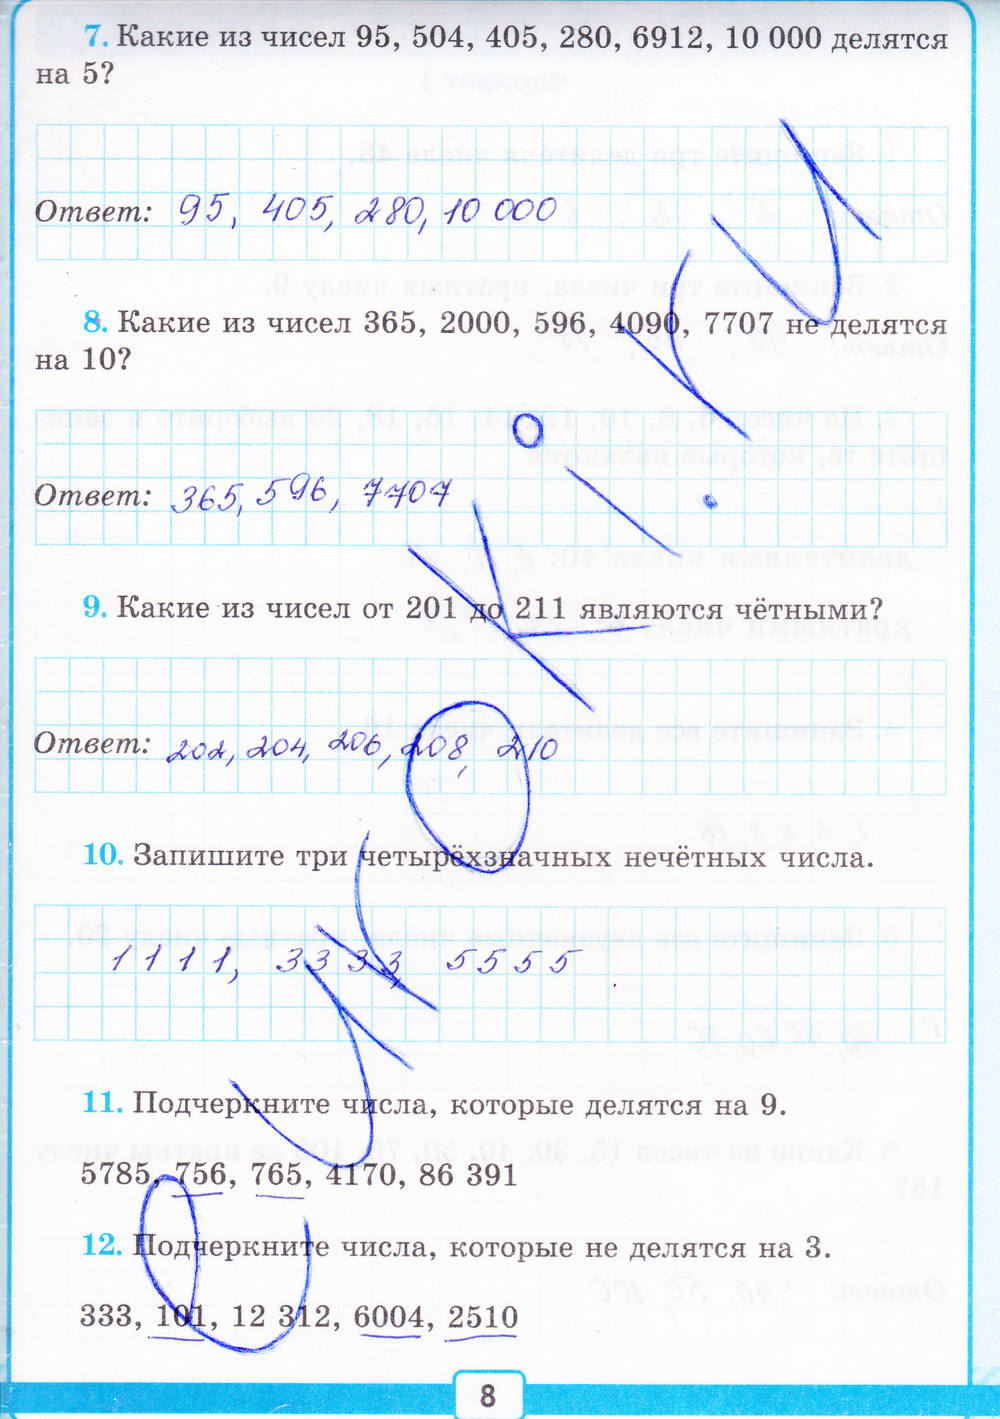 7. Какие из чисел 95, 504, 405, 280, 6912, 10 000 делятся
на 5?
Ответ: 95, 405, 280, 10 000
8. Какие из чисел 365, 2000, 596, 4090, 7707 не делятся
на 10?
Ответ: 365, 596, 7707
9. Какие из чисел от 201 до 211 являются чётными?
Ответ: 202, 204, 206, 208, 210
10. Запишите три четырёхзначных нечётных числа.
1111, 3333, 5555
11. Подчеркните числа, которые делятся на 9.
5785, 756, 765, 4170, 86 391
12. Подчеркните числа, которые не делятся на 3.
333, 101, 12 312, 6004, 2510
8